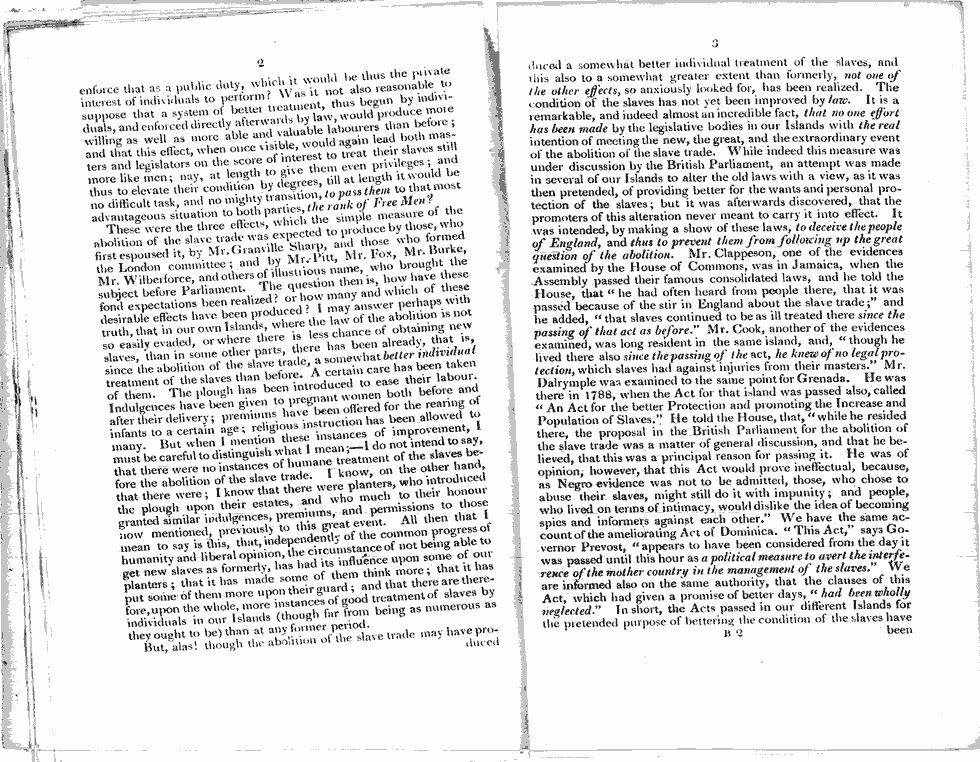 2
enforce that as a public duty, which it would be thus the private
interest of individuals to perform? Was it not also reasonable to
suppose that a system of better treatment, thus begun by indivi-
duals, and enforced directly afterwards by law, would produce more
willing as well as more able and valuable labourers than before;
and that this effect, when once visible, would again lead both mas-
ters and legislators on the score of interest to treat their slaves still
more like men; nay, at length to give them even privileges; and
thus to elevate their condition by degrees, till at length it would be
no difficult task, and no mighty transition, to pass them to that most
advantageous situation to both parties, the rank of Free Men?
These were the three effects, which the simple measure of the
abolition of the slave trade was expected to produce by those, who
first espoused it, by Mr. Granville Sharp, and those who formed
the London committee; and by Mr. Pitt, Mr. Fox, Mr. Burke,
Mr. Wilberforce, and others of illustrious name, who brought the
subject before Parliament. The question then is, how have these
fond expectations been realized? or how many and which of these
desirable effects have been produced? I may answer perhaps with
truth, that in our own Islands, where the law of the abolition is not
so easily evaded, or where there is less chance of obtaining new
slaves, than in some other parts, there has been already, that is,
since the abolition of the slave trade, a somewhat better individual
treatment of the slaves than before. A certain care has been taken
of them. The plough has been introduced to ease their labour.
Indulgences have been given to pregnant women both before and
after their delivery; premiums have been offered for the rearing of
infants to a certain age; religious instruction has been allowed to
many. But when I mention these instances of improvement, I
must be careful to distinguish what I mean;—I do not intend to say,
that there were no instances of humane treatment of the slaves be-
fore the abolition of the slave trade. I know, on the other hand,
that there were; I know that there were planters, who introduced
the plough upon their estates, and who much to their honour
granted similar indulgences, premiums, and permissions to those
now mentioned, previously to this great event. All then that I
mean to say is this, that, independently of the common progress of
humanity and liberal opinion, the circumstance of not being able to
get new slaves as formerly, has had its influence upon some of our
planters; that it has made some of them think more; that it has
put some of them more upon their guard; and that there are there-
fore, upon the whole, more instances of good treatment of slaves by
individuals in our Islands (though far from being as numerous as
they ought to be) than at any former period.
But, alas! though the abolition of the slave trade may have pro-
duced
3
duced a somewhat better individual treatment of the slaves, and
this also to a somewhat greater extent than formerly, not one of
the other effects, so anxiously looked for, has been realized. The
condition of the slaves has not yet been improved by law. It is a
remarkable, and indeed almost an incredible fact, that no one effort
has been made by the legislative bodies in our Islands with the real
intention of meeting the new, the great, and the extraordinary event
of the abolition of the slave trade. While indeed this measure was
under discussion by the British Parliament, an attempt was made
in several of our Islands to alter the old laws with a view, as it was
then pretended, of providing better for the wants and personal pro-
tection of the slaves; but it was afterwards discovered, that the
promoters of this alteration never meant to carry it into effect. It
was intended, by making a show of these laws, to deceive the people
of England, and thus to prevent them from following up the great
question of the abolition. Mr. Clappeson, one of the evidences
examined by the House of Commons, was in Jamaica, when the
Assembly passed their famous consolidated laws, and he told the
House, that "he had often heard from people there, that it was
passed because of the stir in England about the slave trade;" and
he added, "that slaves continued to be as ill treated there since the
passing of that act as before." Mr. Cook, another of the evidences
examined, was long resident in the same island, and, "though he
lived there also since the passing of the act, he knew of no legal pro-
tection, which slaves had against injuries from their masters." Mr.
Dalrymple was examined to the same point for Grenada. He was
there in 1788, when the Act for that island was passed also, called
"An Act for the better Protection and promoting the Increase and
Population of Slaves." He told the House, that, "while he resided
there, the proposal in the British Parliament for the abolition of
the slave trade was a matter of general discussion, and that he be-
lieved, that this was a principal reason for passing it. He was of
opinion, however, that this Act would prove ineffectual, because,
as Negro evidence was not to be admitted, those, who chose to
abuse their slaves, might still do it with impunity; and people,
who lived on terms of intimacy, would dislike the idea of becoming
spies and informers against each other." We have the same ac-
count of the ameliorating Act of Dominica. "This Act," says Go-
vernor Prevost, "appears to have been considered from the day it
was passed until this hour as a political measure to avert the interfe-
rence of the mother country in the management of the slaves." We
are informed also on the same authority, that the clauses of this
Act, which had given a promise of better days, "had been wholly
neglected." In short, the Acts passed in our different Islands for
the pretended purpose of bettering the condition of the slaves have
B 2
been